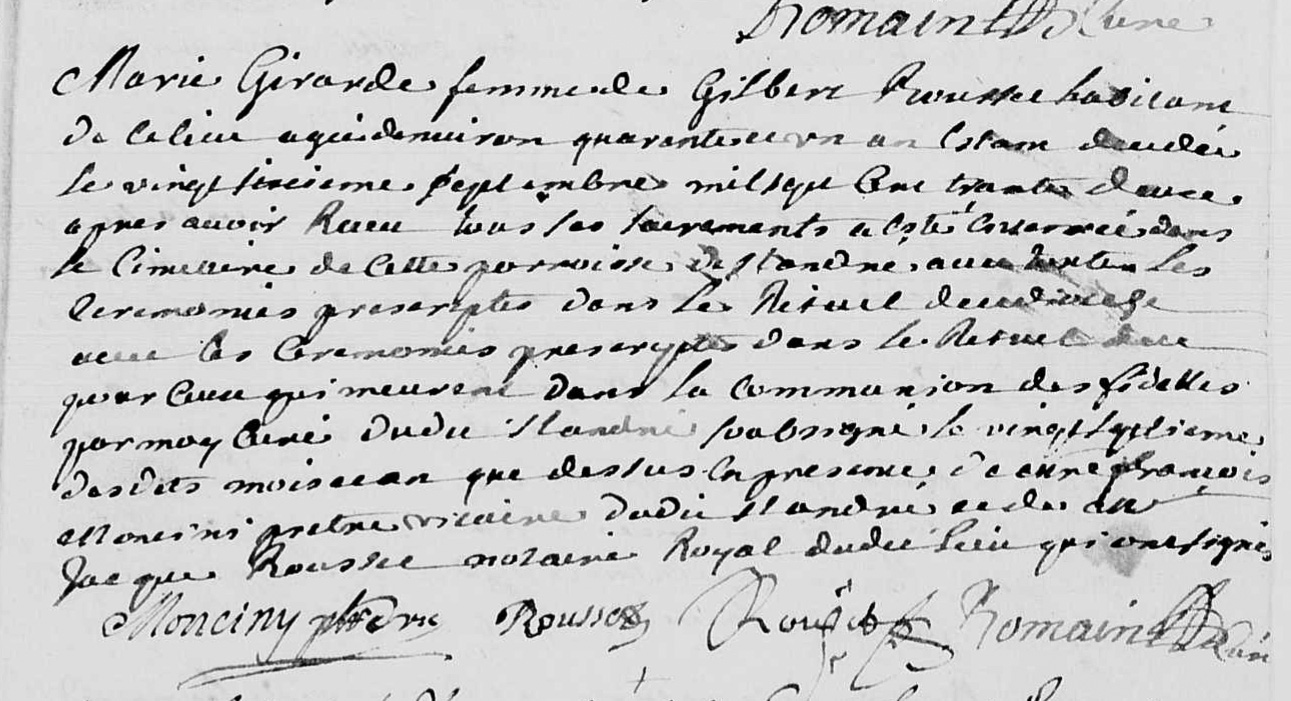 Romain Curé
Marie Girarde femme de Gilbert Rousset habitant
de ce lieu agée denviron quarante et un an estant decedée
le vingt sixieme septembre mil sept cent trante deux
apres avoir Receu tous les sacrements a esté enterrée dans
le Cimetiere de cette parroisse de st andré avec toutes les
Ceremonies prescriptes dans le Rituel du diocese
avec les Ceremonies prescryptes dans le Rituel
pour ceux qui meurent dans la communion des fidelles
par moy Curé dudit st andré soubsigné le vingt septieme
desdits mois et an que dessus en presence de françois
Moncini pretre vicaire dudit st andré et de
Jacque Rousset notaire Royal dudit lieu qui ont signés
Monciny ptre Rousset Rousset Romain Curé